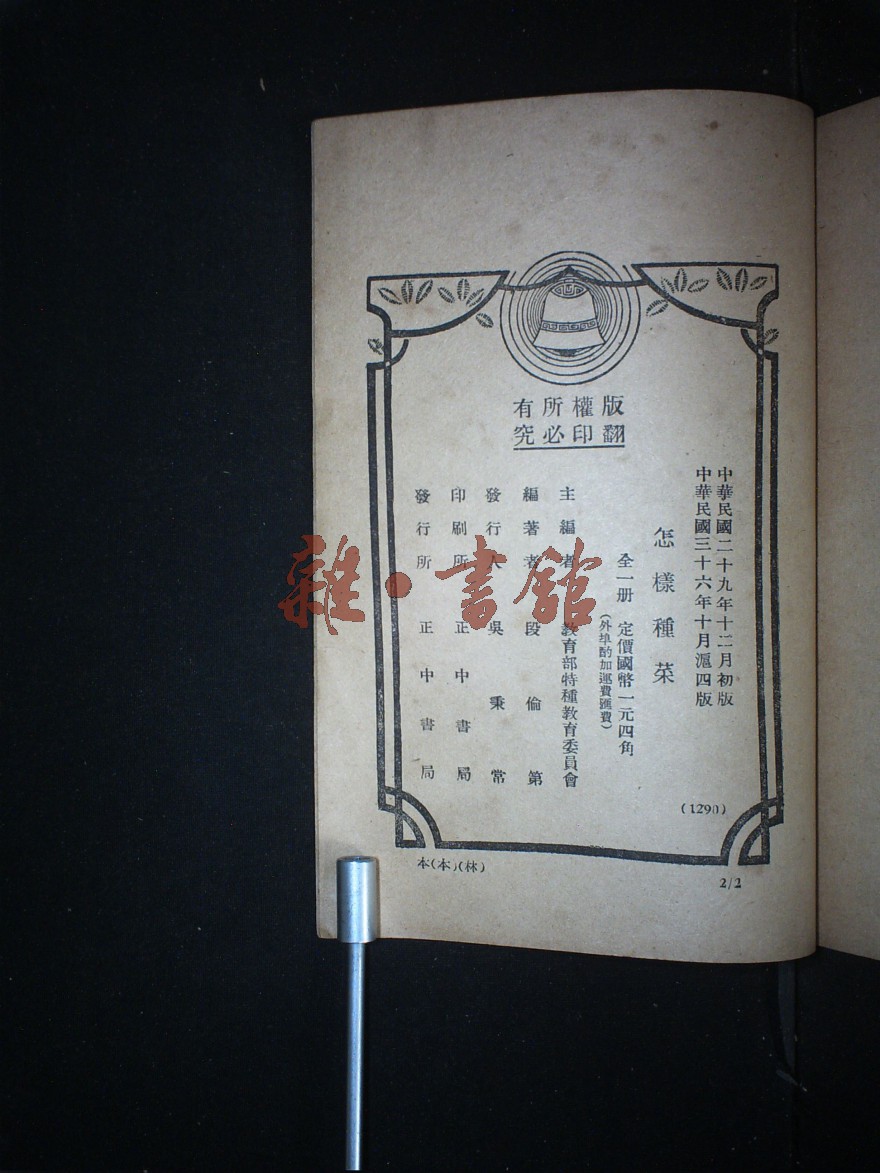 版權所有
翻印必究
中華民國二十九年十二月初版
中華民國三十六年十月滬四版
怎樣種菜
全一册 定價國幣一元四角
(外埠酌加運費匯費)
主編者 教育部特種教育委員會
編著者 段倫第
發行人 吳秉常
印刷所 正中書局
發行所 正中書局
(1290)
本(本)(林)
2/2
雜·書館